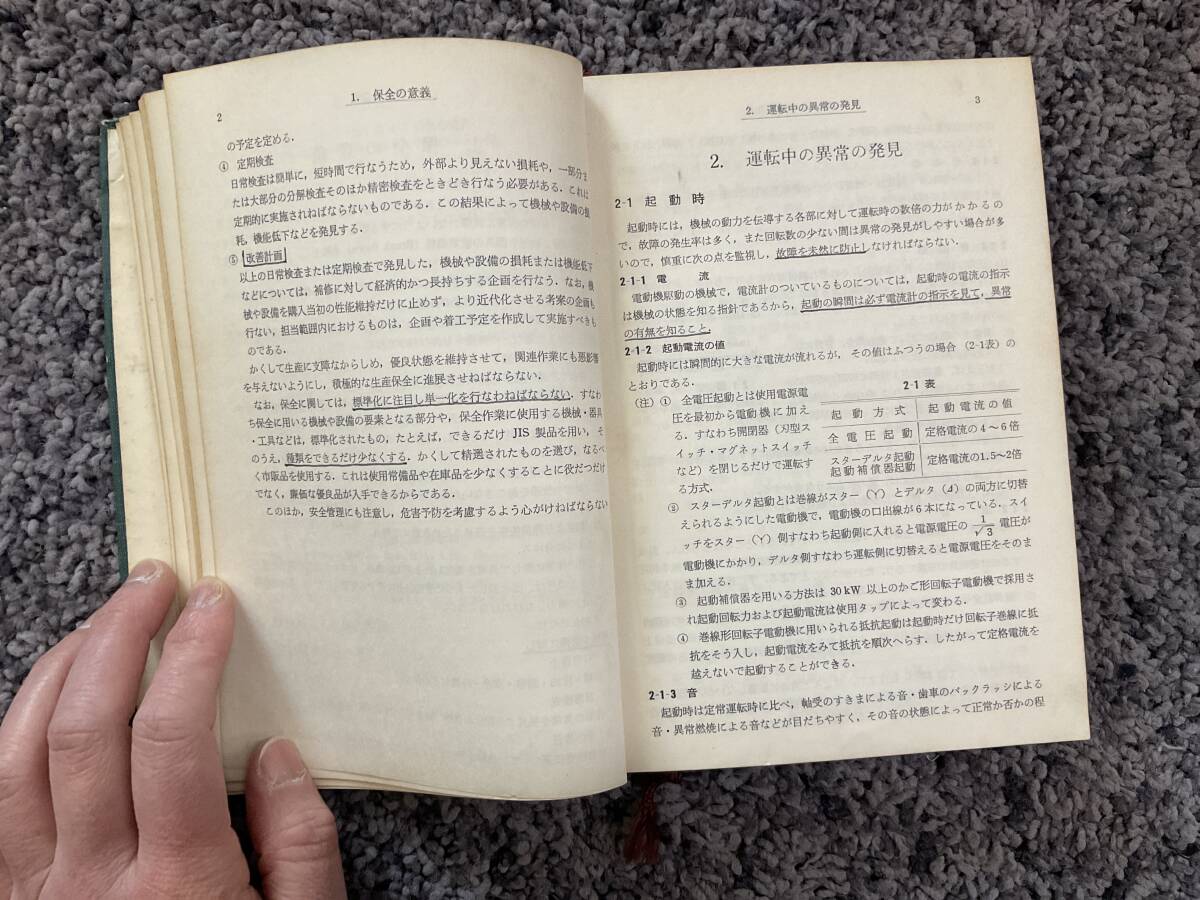 2
1. 保全の意義
の予定を定める．
④ 定期検査
日常検査は簡単に，短時間で行なうため，外部より見えない損耗や，一部分ま
たは大部分の分解検査そのほか精密検査をときどき行なう必要がある．これは
定期的に実施されねばならないものである．この結果によって機械や設備の損
耗，機能低下などを発見する．
⑤ 改善計画
以上の日常検査または定期検査で発見した，機械や設備の損耗または機能低下
などについては，補修に対して経済的かつ長持ちする企画を行なう．なお，機
械や設備を購入当初の性能維持だけに止めず，より近代化させる考案の企画も
行ない，担当範囲内におけるものは，企画や着工予定を作成して実施すべきも
のである．
かくして生産に支障なからしめ，優良状態を維持させて，関連作業にも悪影響
を与えないようにし，積極的な生産保全に進展させねばならない．
なお，保全に関しては，標準化に注目し単一化を行なわねばならない．すなわ
ち保全に用いる機械や設備の要素となる部分や，保全作業に使用する機械・器具
・工具などは，標準化されたもの，たとえば，できるだけ JIS 製品を用い，そ
のうえ，種類をできるだけ少なくする．かくして精選されたものを選び，なるべ
く市販品を使用する．これは使用常備品や在庫品を少なくすることに役だつだけ
でなく，廉価な優良品が入手できるからである．
このほか，安全管理にも注意し，危害予防を考慮するよう心がけねばならない
2. 運転中の異常の発見
3
2. 運転中の異常の発見
2-1 起動時
起動時には，機械の動力を伝導する各部に対して運転時の数倍の力がかかるの
で，故障の発生率は多く，また回転数の少ない間は異常の発見がしやすい場合が多
いので，慎重に次の点を監視し，故障を未然に防止しなければならない．
2-1-1 電流
電動機駆動の機械で，電流計のついているものについては，起動時の電流の指示
は機械の状態を知る指針であるから，起動の瞬間は必ず電流計の指示を見て，異常
の有無を知ること．
2-1-2 起動電流の値
起動時には瞬間的に大きな電流が流れるが，その値はふつうの場合（2-1表）の
とおりである．
（注）① 全電圧起動とは使用電源電
圧を最初から電動機に加え
る．すなわち開閉器（刃型スイ
ッチ・マグネットスイッチ
など）を閉じるだけで運転す
る方式．
2-1 表
起動方式 起動電流の値
全電圧起動 定格電流の4〜6倍
スターデルタ起動
起動補償器起動 定格電流の1.5〜2倍
② スターデルタ起動とは巻線がスター（Y）とデルタ（Δ）の両方に切替
えられるようにした電動機で，電動機の口出線が6本になっている．スイ
ッチをスター（Y）側すなわち起動側に入れると電源電圧の 1/√3 電圧が
電動機にかかり，デルタ側すなわち運転側に切替えると電源電圧をそのま
ま加える．
③ 起動補償器を用いる方法は 30 kW 以上のかご形回転子電動機で採用さ
れ起動回転力および起動電流は使用タップによって変わる．
④ 巻線形回転子電動機に用いられる抵抗起動は起動時だけ回転子巻線に抵
抗をそう入し，起動電流をみて抵抗を順次へらす．したがって定格電流を
越えないで起動することができる．
2-1-3 音
起動時は定常運転時に比べ，軸受のすきまによる音・歯車のバックラッシによる
音・異常燃焼による音などが目だちやすく，その音の状態によって正常か否かの程